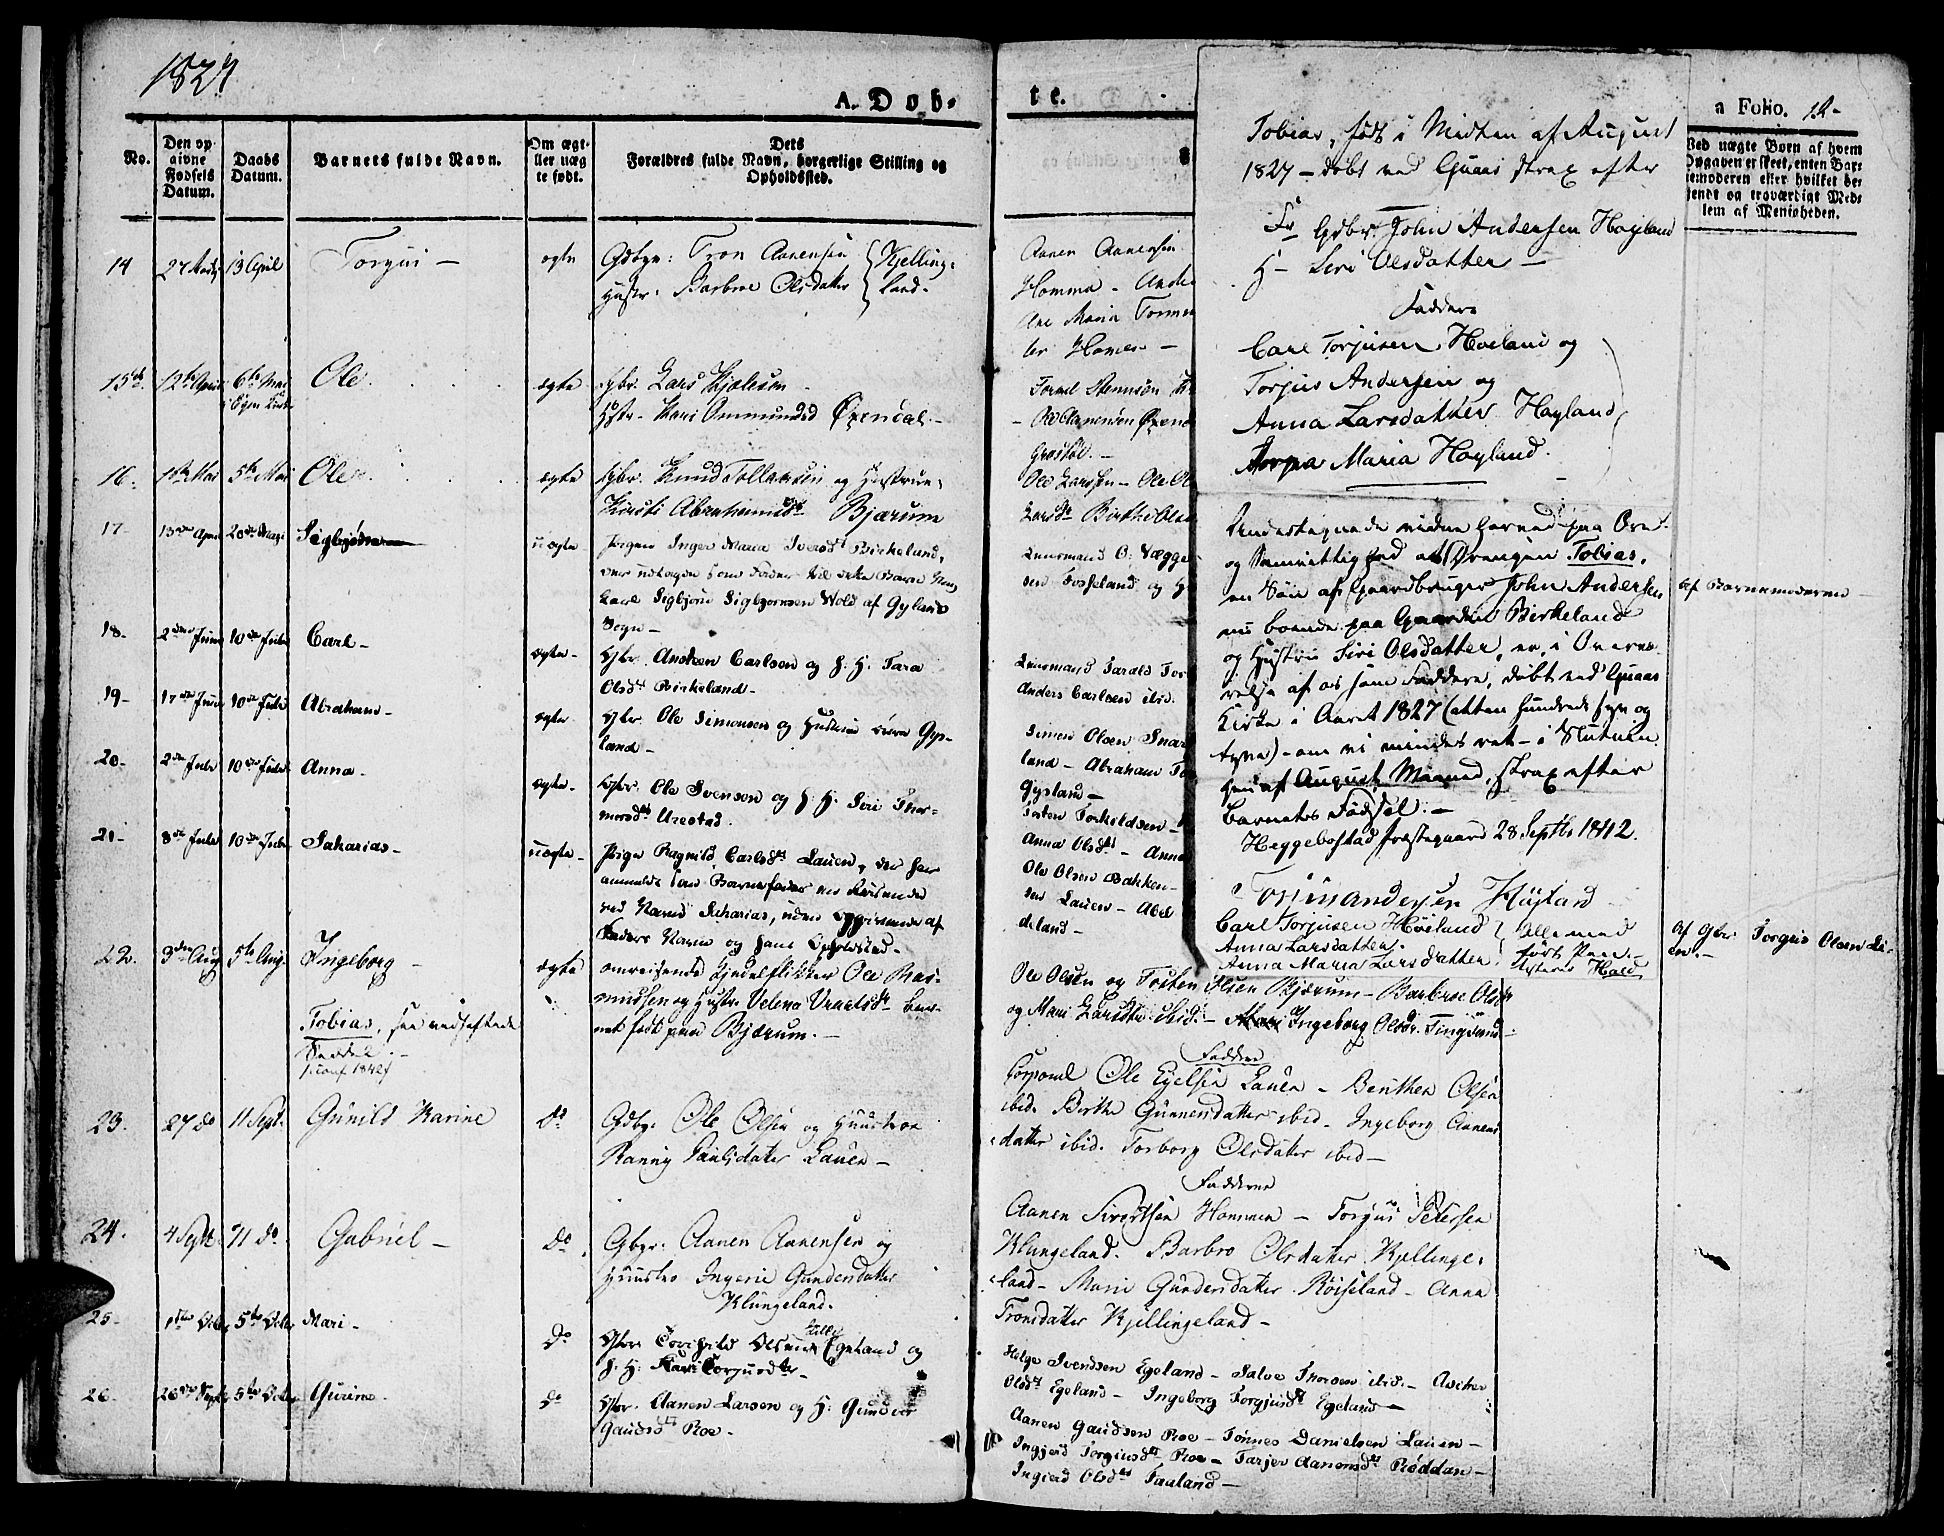 1827
A. Døb-
No.
Den op
givne
Fødsels
Datum.
Daabs
Datum.
Barnets fulde Navn.
Om ægt-
eller uæg
te født.
Dets
Forældres fulde Navn, borgerlige Stilling og
Opholdssted.
14 13 April Torgius — ægte Gdbgr: Tron Aanensen Kjelling-
Hustr: Barbroe Olsdatter land.
15de 12te April 6te Mai Ole. ægte Gbr. Lars
Hstr. Mari Omundsd Øxendal.
16. 1ste Mai 5te Mai Ole ægte Gbr. Knud Tollaksen og Hustrue
Kirsti Abrahamsdt Bjærum
17. 13de April 20de Mai Sigbjørn uægte Pigen Inger Maria Iversdt Birkeland,
Karl Sigbjørn Sigbjørnsen Wold af Gyland
Sogn —
18. 2den Juni 10de Juli Carl — ægte — Gbr. Andreas Carlsen og h. H. Tara
Olsdt Birkeland —
19. 17de Juni 10de Juli Abraham — ægte Gbr. Ole Simonsen og Hustrue Gys-
land —
20. 2den Juli 10de Juli Anna — ægte — Gbr. Ole Svensen og h. H. Siri Thor-
morsdt Urestad.
21. 8de Juli 10de Juli Sakarias — uægte — Pige Ragnild Carlsdt Lauen, der har
anmeldt som Barnefader en Reisende
ved Navn Sakarias, uden Opgivende af
Faders Navn og hans Opholdsted —
22. 3den Aug 5te Aug. Ingeborg — ægte omreisende Kjedelflikker Ole Ras-
mussen og Hustr Velena
net født paa Bjærum. —
Tobias, see vedheftede
Seddel. —
conf 1842
23. 27 do 11 Sept. Gunild Karine Do Gdbgr: Ole Olsen og Huustroe
Ranny Paulsdater Lauen —
24. 4 Sept. 11 do Gabriel — Do Gbgr: Aanen Aanensen og
Huustro Ingerie Gundersdatter
Klungeland.
25. 1ste Octbr 5te Octbr Mari — Do Gbr. Torkild Olsen Lille Egeland og
h. H. Mari Torjusdtr —
26. 26de Septbr 5te Octbr Gurine Do Gbr. Aanen Larsen og H: Gunder
Gaudsdt Roe —
te.
Aanen Aanensen
Homma — Ande
Ane Maria Torm
ter Homme —
Tormod Stennsøn
— Ole Aanensøn Øxend
Grøstøl. —
Ole Larssen — Ole Ol
Larsdt Birthe Olsd
Lensmand O: Vægge
sen Fosseland og H
Lensmand Tarald Tor
Anders Carlsen ibid.
Simon Olsen Snar
land — Abraham To
Gysland —
Tosten Torkeldsen —
Anna Olsdt — Anna
Ole Olsen Bakken —
sen Lauen — Abel
deland —
Ole Olsen og Tosten Olsen Bjærum — Barbroe Olsdt
og Mari Larsdtr ibid. — Ingeborg Olsdr. Tingvand —
Faddere
Corporal Ole Eyelsen Lauen — Benthen Olsen
ibid. Birthe Gunnersdatter ibid — Ingeborg Aanens
datter ibid. Torborg Olsdater ibid —
Fadderne
Aanen Sivertsen Hommen — Torgius Petersen
Klungeland. Barbro Olsdater Kjellinge-
land — Marie Gundersdatter Røiseland — Anna
Tronsdatter Kjellingeland —
Helge Svendsen Egeland — Salve Thorsen ibid. —
Olsdt Egeland — Ingeborg Torgjusdt Egeland —
Aanen Gaudsen Roe — Tønnes Danielsen Lauen —
Ingjerd Torgiusdt Roe — Tarjer Aanensdt Røddan —
Ingierd Olsdt Faaland —
Tobias, født i Midten af August
1827 — døbt ved Quaas strax efter
Fr Gdbr. John Andersen Høyland
H — Siri Olsdatter —
Faddere
Carl Torjusen Høeland og
Torjus Andersen og
Anna Larsdatter Høyland
Anna Maria Høyland.
Undertegnede vidne herved paa Ære
og Samvittighed at Drengen Tobias,
en Søn af Gaardbruger John Andersen
nu boende paa Gaarden Birkeland
og Hustru Siri Olsdatter, er, i Overvæ-
relse af os som Faddere, døbt ved Quaas
Kirke i Aaret 1827 (atten hundrede syv og
tyve) — om vi mindes ret — i Slutnin-
gen af August Maaned, strax efter
Barnets Fødsel. —
Heggebostad Præstegaard 28 Septbr 1842.
Torius Andersen Høyland
Carl Torjusen Høieland
Anna Larsdatter.
Anna Maria Larsdatter
Alle med
ført Pen.
Hald
a Folio. 12.
Ved uægte Børn af hvem
Opgaven er skeet, enten Bar-
nemoderen eller hvilket be-
kjendt og troværdigt Med-
lem af Menigheden.
Af Barnemoderen —
Af Gbr. Torgius Olsen La-
en. —